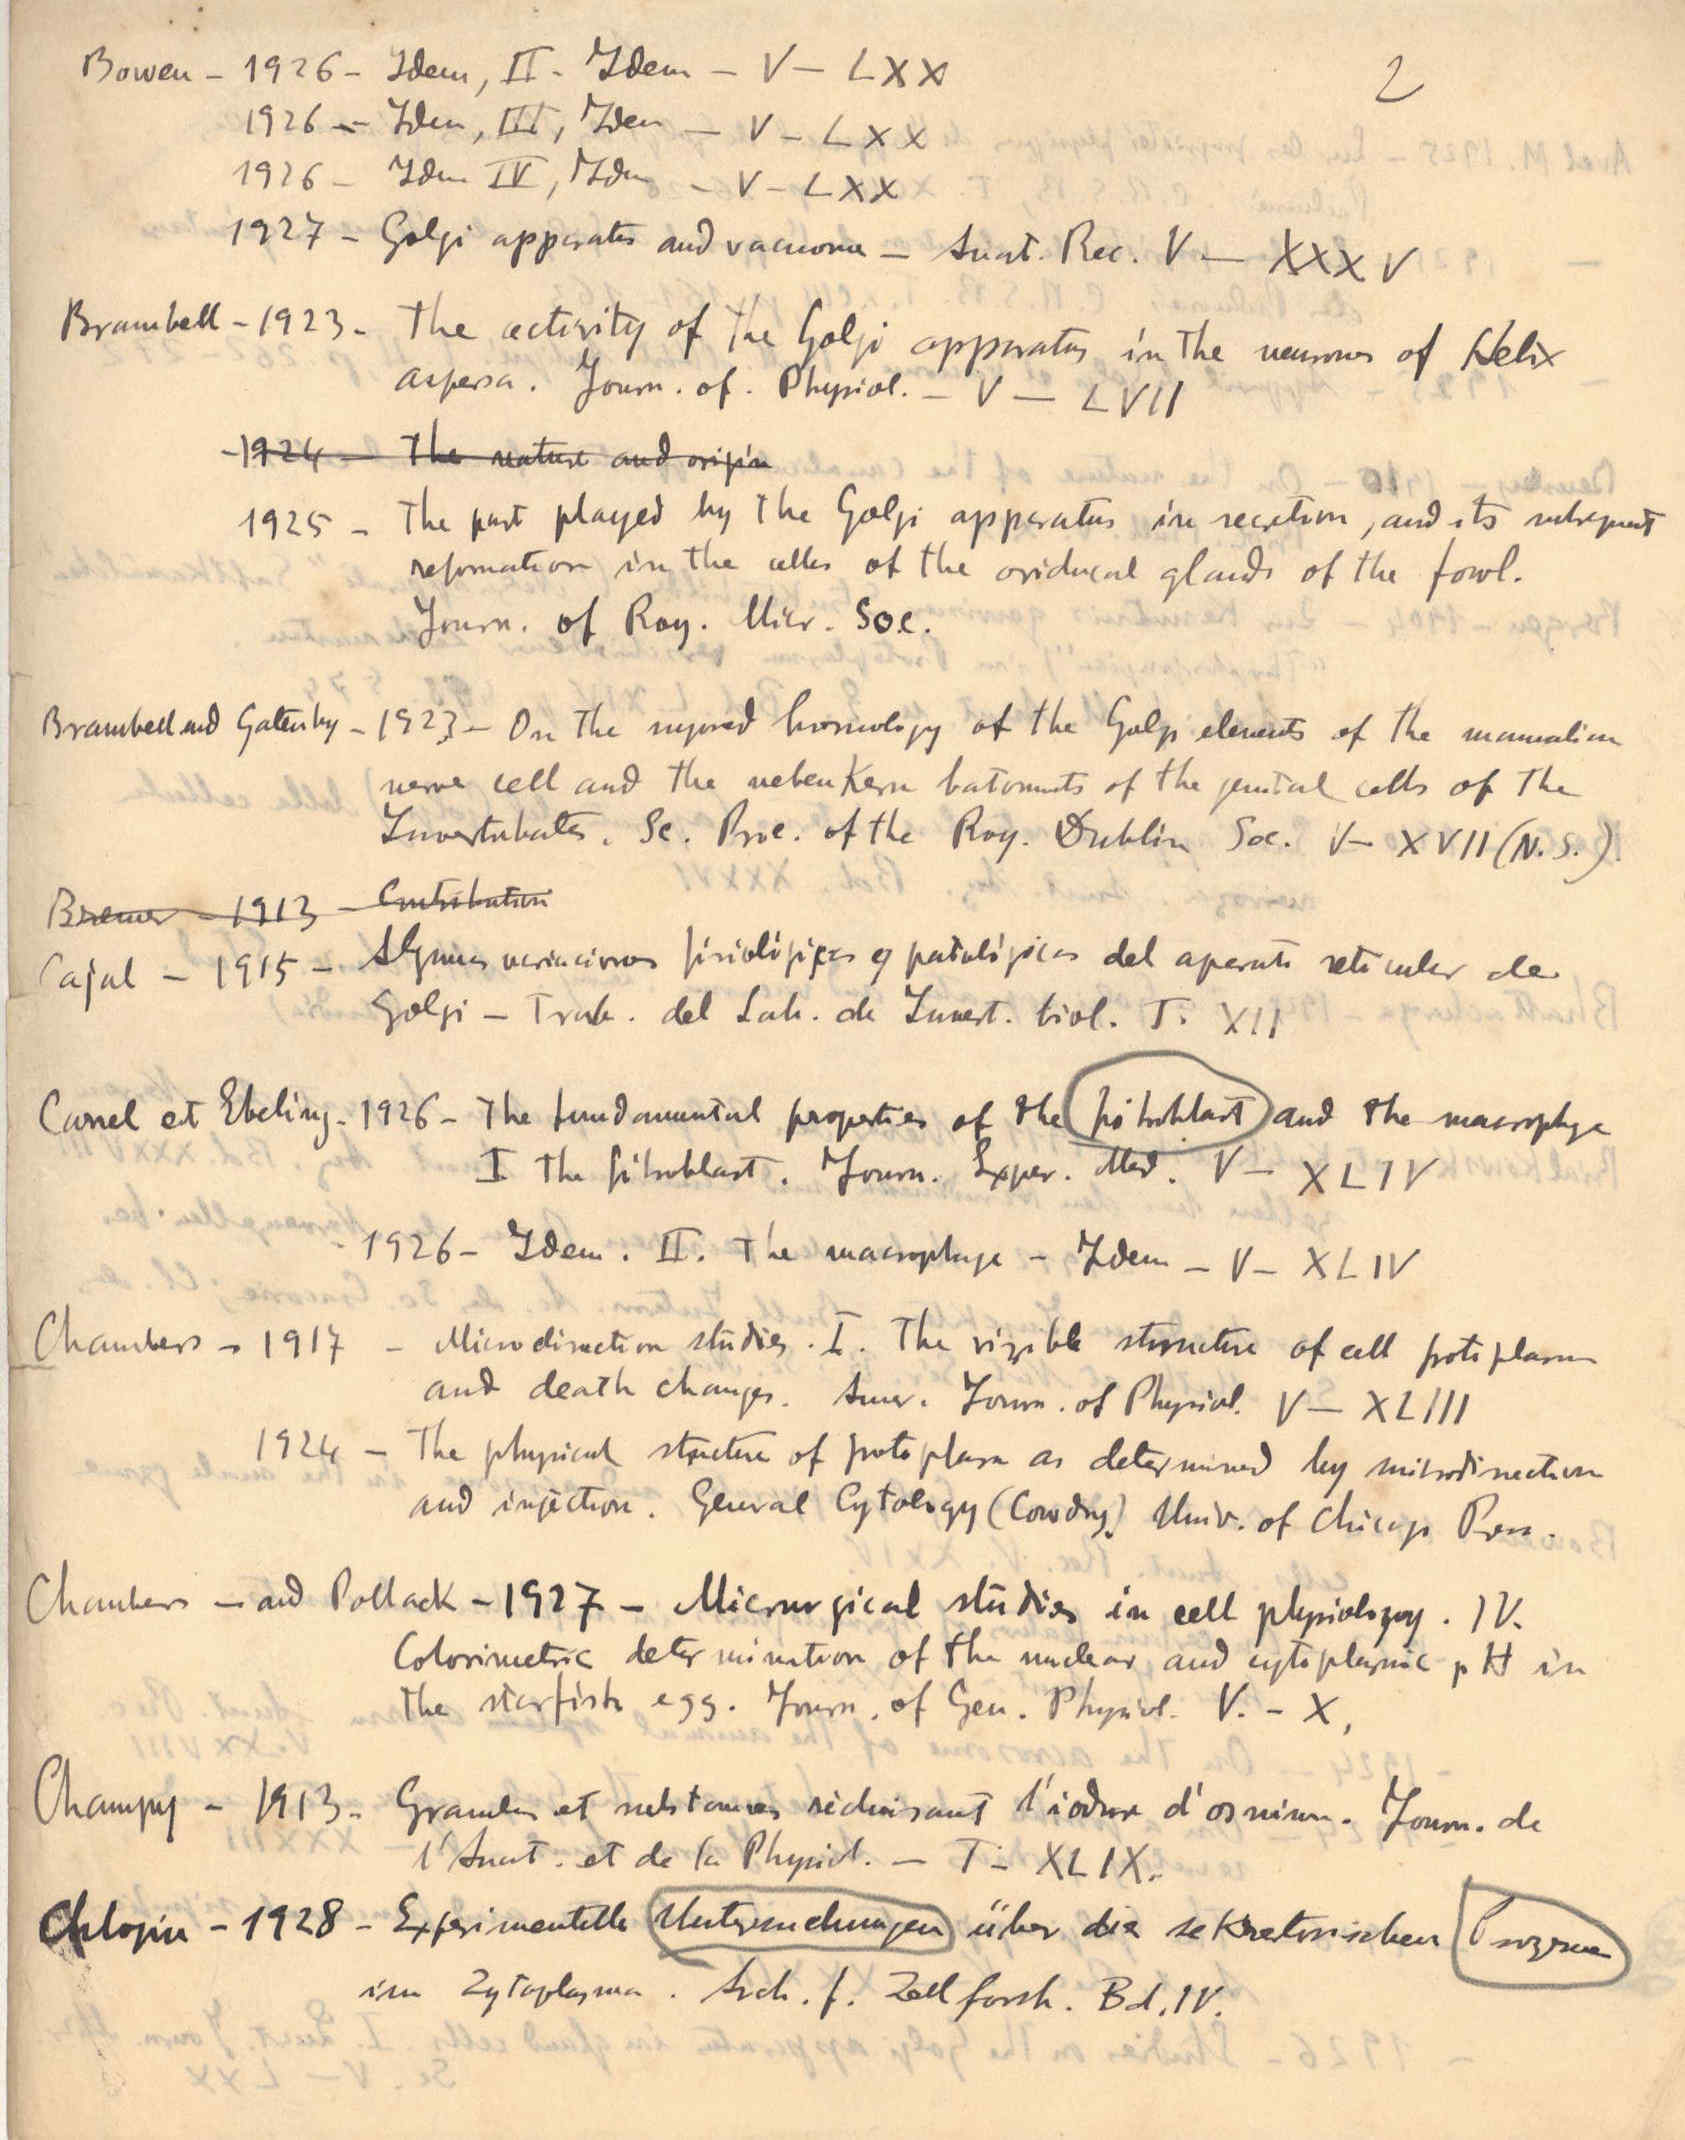 2
Bowen - 1926 - Idem, II - Idem - V - LXX
1926 - Idem, III, Idem - V - LXX
1926 - Idem IV, Idem - V - LXX
1927 - Golgi apparatus and vacuome - Anat. Rec. V - XXXV
Brambell - 1923 - The activity of the Golgi apparatus in the neurones of Helix
aspersa. Journ. of. Physiol. - V - LVII
- 1924 - The nature and origin
1925 - The part played by the Golgi apparatus in secretion, and its subsequent
reformation in the cells of the oviducal glands of the fowl.
Journ. of Roy. Micr. Soc.
Brambell and Gatenby - 1923 - On the supposed homology of the Golgi elements of the mammalian
nerve cell and the nebenkern batonnets of the genital cells of the
Invertebrates. Sc. Proc. of the Roy. Dublin Soc. V - XVII (N. S.).
Bremer - 1913 - Contribution
Cajal - 1915 - Algunas variaciones fisiológicas y patológicas del aparato reticular de
Golgi - Trab. del Lab. de Invest. biol. T. XII
Carrel et Ebeling - 1926 - The fundamental properties of the fibroblast and the macrophage
I The fibroblast. Journ. Exper. Med. V - XLIV
1926 - Idem. II. The macrophage - Idem - V - XLIV
Chambers - 1917 - Microdissection studies. I. The visible structure of cell protoplasm
and death changes. Amer. Journ. of Physiol. V - XLIII
1924 - The physical structure of protoplasm as determined by microdissection
and injection. General Cytology (Cowdry) Univ. of Chicago Press.
Chambers - and Pollack - 1927 - Micrurgical studies in cell physiology. IV.
Colorimetric determination of the nuclear and cytoplasmic pH in
the starfish egg. Journ. of Gen. Physiol. V. - X.
Champy - 1913 - Granules et substances réduisant l'iodure d'osmium. Journ. de
l'Anat. et de la Physiol. - T - XLIX.
Chlopin - 1928 - Experimentelle Untersuchungen über die sekretorischen Prozesse
im Zytoplasma. Arch. f. Zellforsch. Bd. IV.